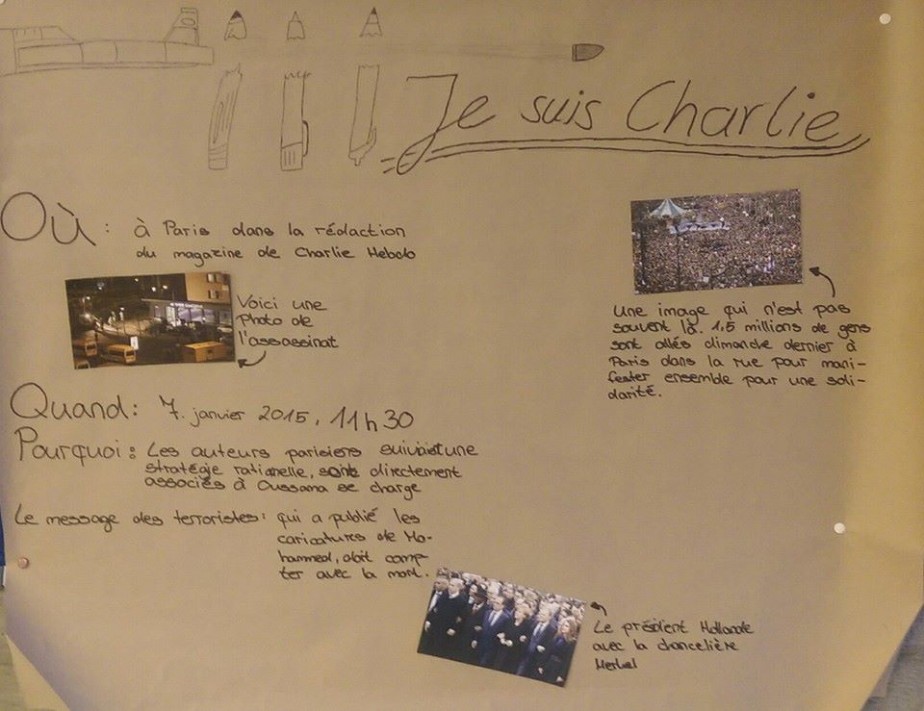 Je suis Charlie
Où : à Paris dans la rédaction
du magazine de Charlie Hebdo
Voici une
photo de
l'assassinat
Une image qui n'est pas
souvent là. 1,5 millions de gens
sont allés dimanche dernier à
Paris dans la rue pour mani-
fester ensemble pour une soli-
darité.
Quand: 7. janvier 2015, 11h30
Pourquoi: Les auteurs parisiens une
stratégie rationelle, sont directement
associés à Oussama se charge
Le message des terroristes: qui a publié les
caricatures de Mo-
hammed, doit comp-
ter avec la mort.
Le président Hollande
avec la chancelière
Merkel